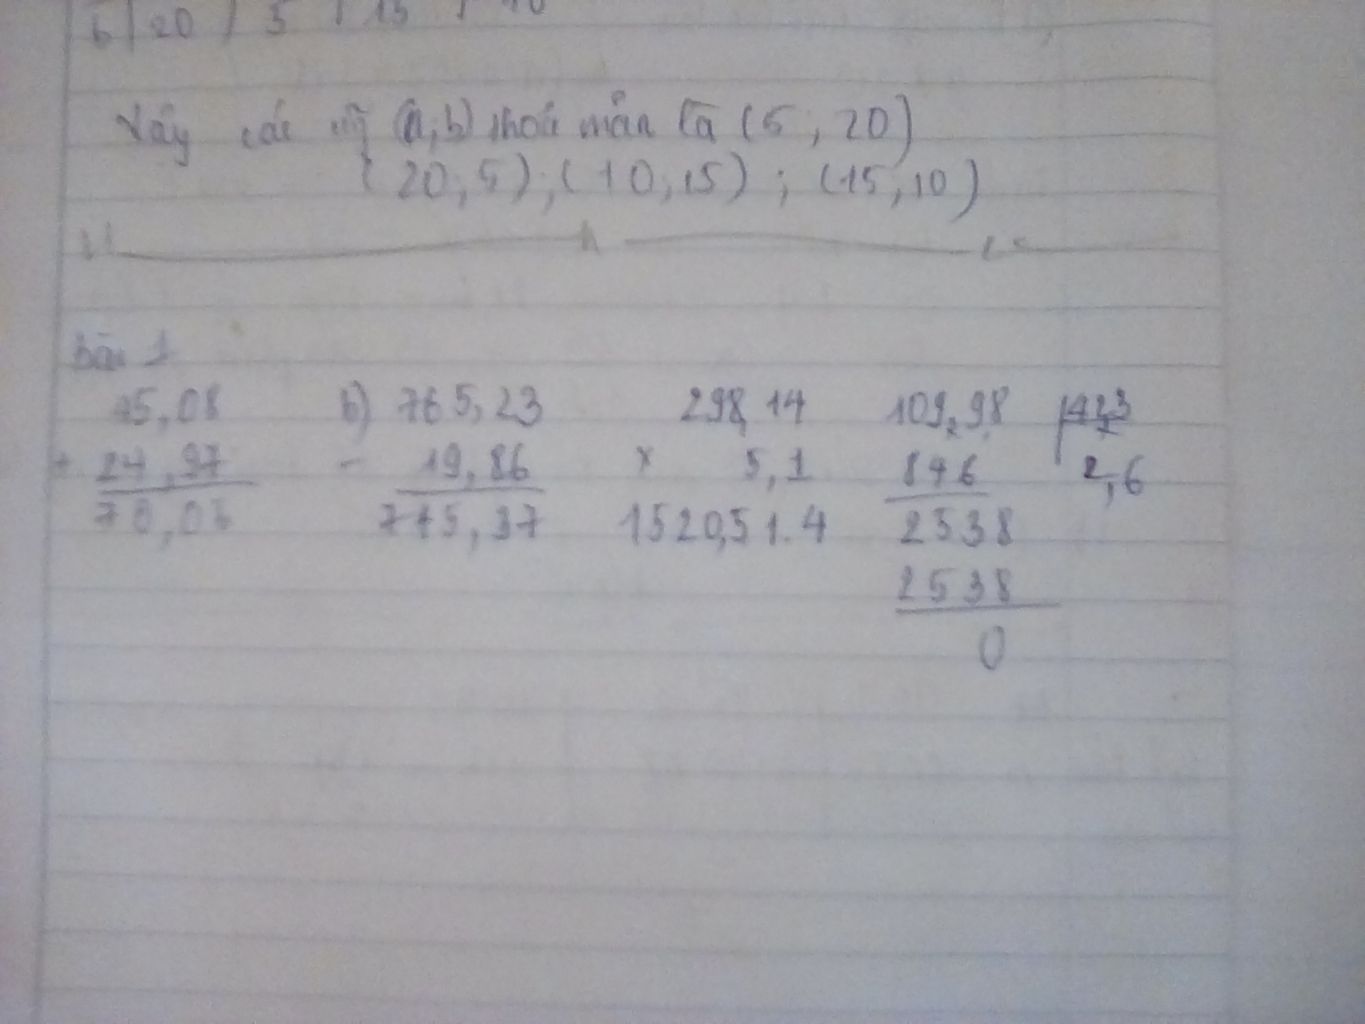 b | 20 | 5 | 15 | 10
Vậy các cặp (a,b) thoả mãn là (5, 20)
(20, 5); (10, 15); (15, 10)
bài 1
b) 765,23 298,14 109,98 423
+ 24,97 - 19,86 x 5,1 846 2,6
745,37 1520,51.4 2538
2538
0